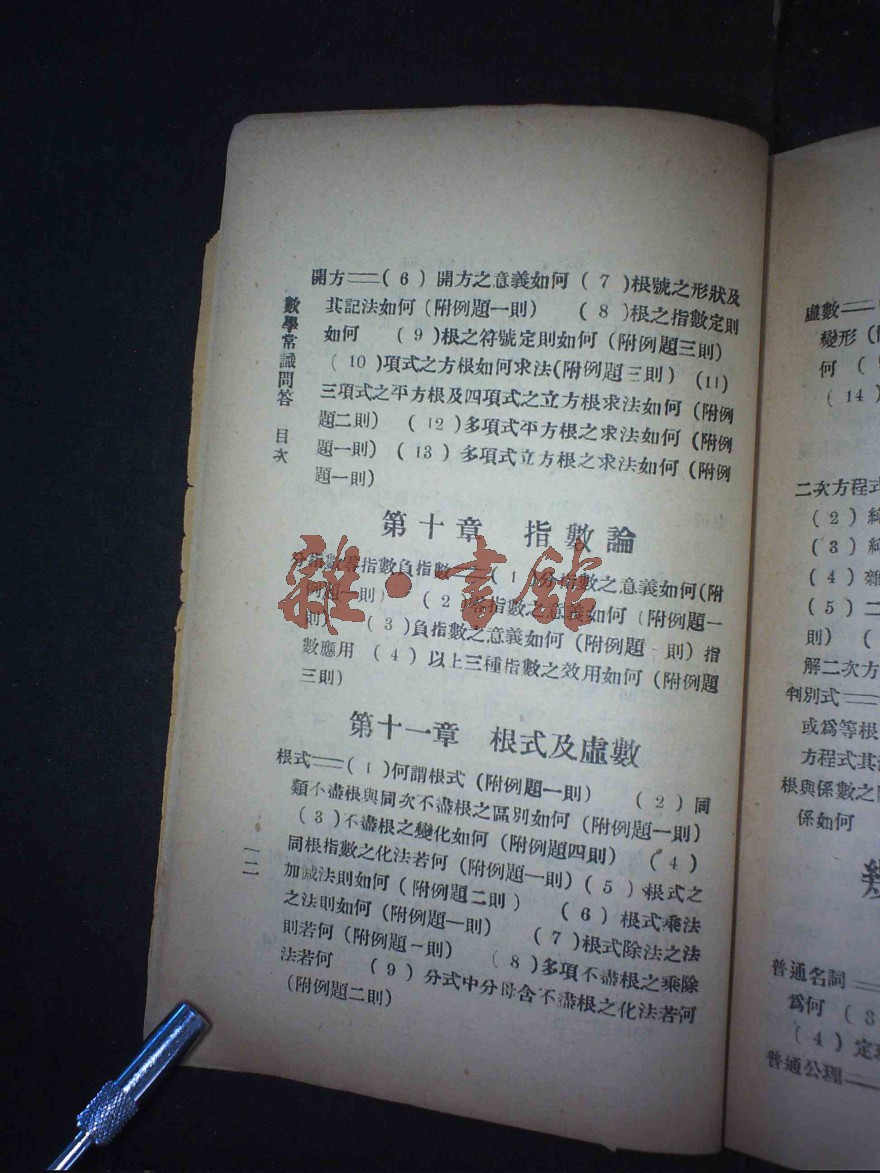 開方══(6)開方之意義如何(7)根號之形狀及
其記法如何(附例題一則) (8)根之指數定則
如何 (9)根之符號定則如何(附例題三則)
(10)項式之方根如何求法(附例題三則) (11)
三項式之平方根及四項式之立方根求法如何(附例
題二則) (12)多項式平方根之求法如何(附例
題一則)(13)多項式立方根之求法如何(附例
題一則)
數學常識問答 目次
第十章 指數論
分指數零指數負指數══(1)分指數之意義如何(附
例題一則) (2)零指數之意義如何(附例題一
則) (3)負指數之意義如何(附例題一則)指
數應用 (4)以上三種指數之效用如何(附例題
三則)
第十一章 根式及虛數
根式══(1)何謂根式(附例題一則) (2)同
類不盡根與同次不盡根之區別如何(附例題一則)
(3)不盡根之變化如何(附例題四則) (4)
同根指數之化法若何(附例題一則)(5)根式之
加減法則如何(附例題二則) (6)根式乘法
之法則如何(附例題一則) (7)根式除法之法
則若何(附例題一則) (8)多項不盡根之乘除
法若何 (9)分式中分母含不盡根之化法若何
(附例題二則)
一二
雜·書館
虛數══
變形
何
(14)
二次方程式
(2)
(3)
(4)
(5)二
則)
解二次方
判別式══
或爲等根
方程式其
根與係數之
係如何
普通名詞══
爲何(3
(4)定
普通公理══